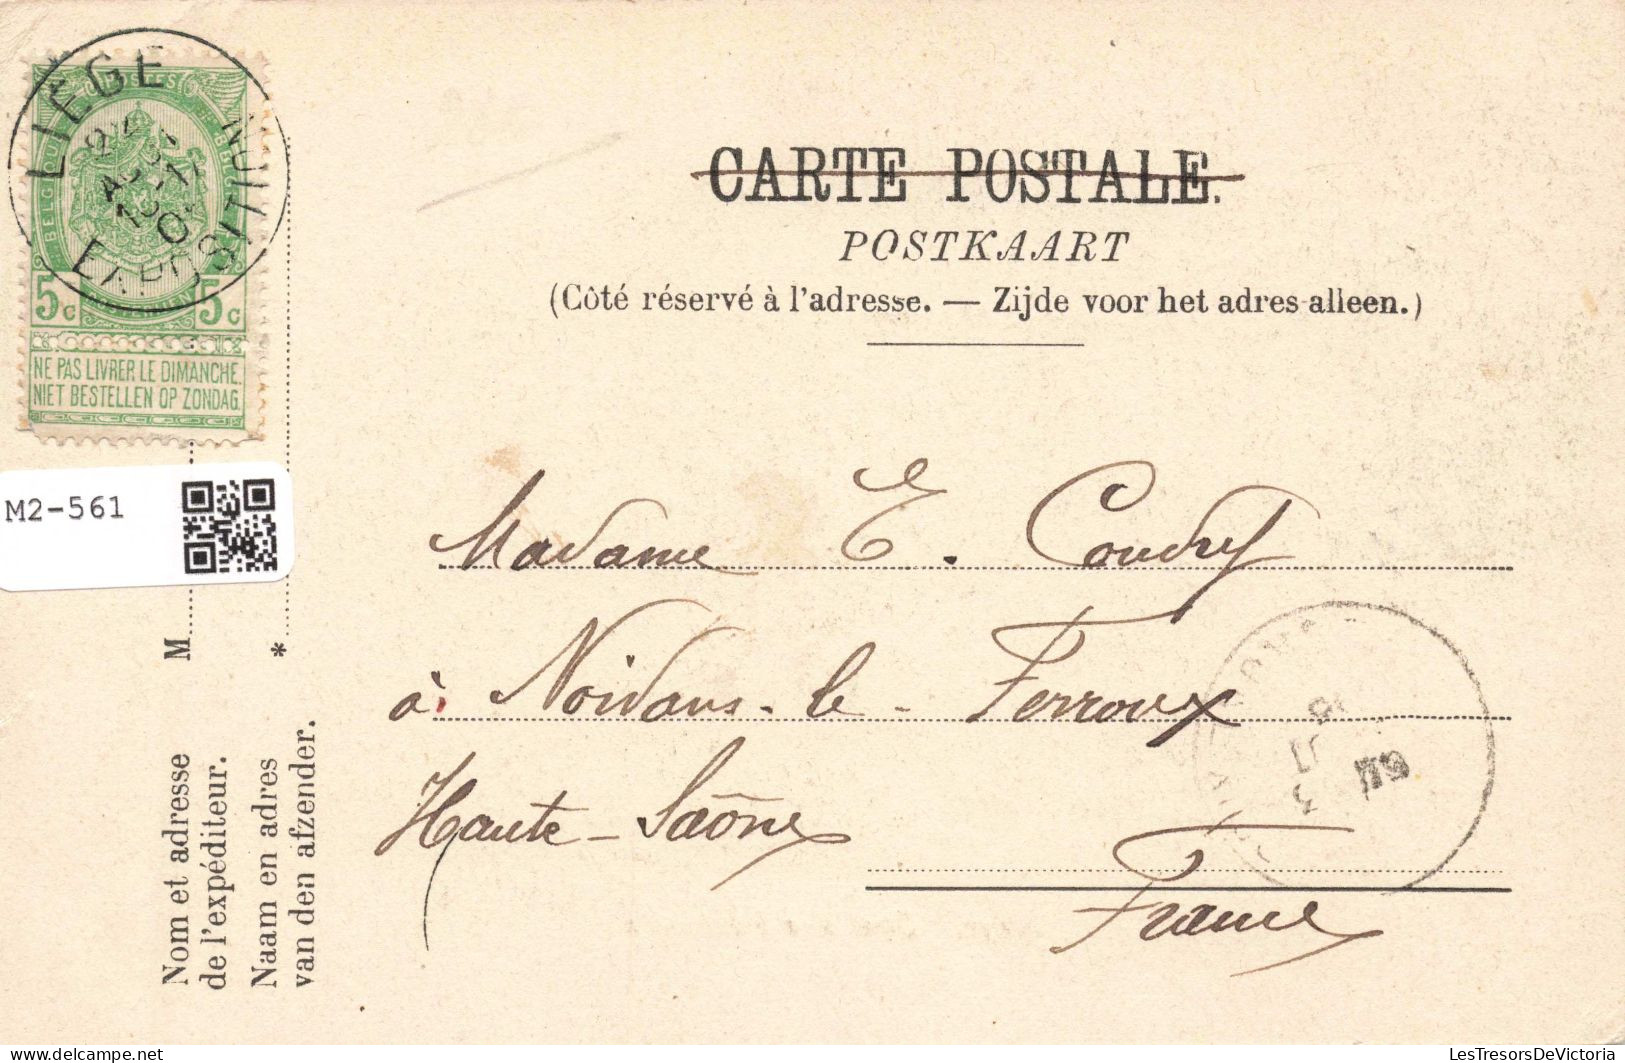 CARTE POSTALE.
POSTKAART
(Côté réservé à l'adresse. — Zijde voor het adres alleen.)
LIEGE
EXPOSITION
POSTES
5c 5c
NE PAS LIVRER LE DIMANCHE.
NIET BESTELLEN OP ZONDAG.
M2-561
M
*
Nom et adresse
de l'expéditeur.
Naam en adres
van den afzender.
Madame E. Coudry
à Noidans-le-Ferroux
Haute-Saône
France
Delcampe.net
LesTresorsDeVictoria